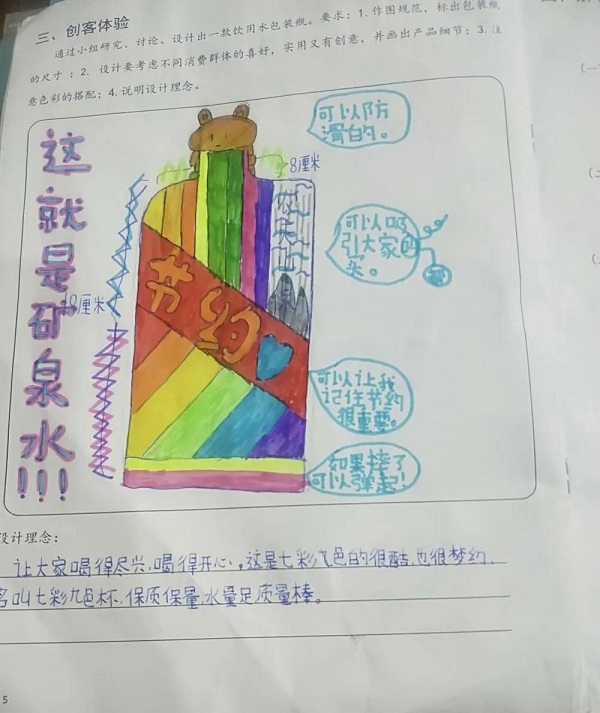 三、创客体验
通过小组研究、讨论、设计出一款饮用水包装瓶。要求：1.作图规范，标出包装瓶
的尺寸；2. 设计要考虑不同消费群体的喜好，实用又有创意，并画出产品细节；3.注
意色彩的搭配；4.说明设计理念。
这就是矿泉水!!!
可以防
滑的。
8厘米
农夫山
可以吸
引大家
买。
节约
18厘米
可以让我
记住节约
很重要。
如果摔了
可以弹起!
设计理念：
让大家喝得尽兴,喝得开心,这是七彩九色的很酷,也很梦幻,
名叫七彩九色杯,保质保量,水量足质量棒。
5